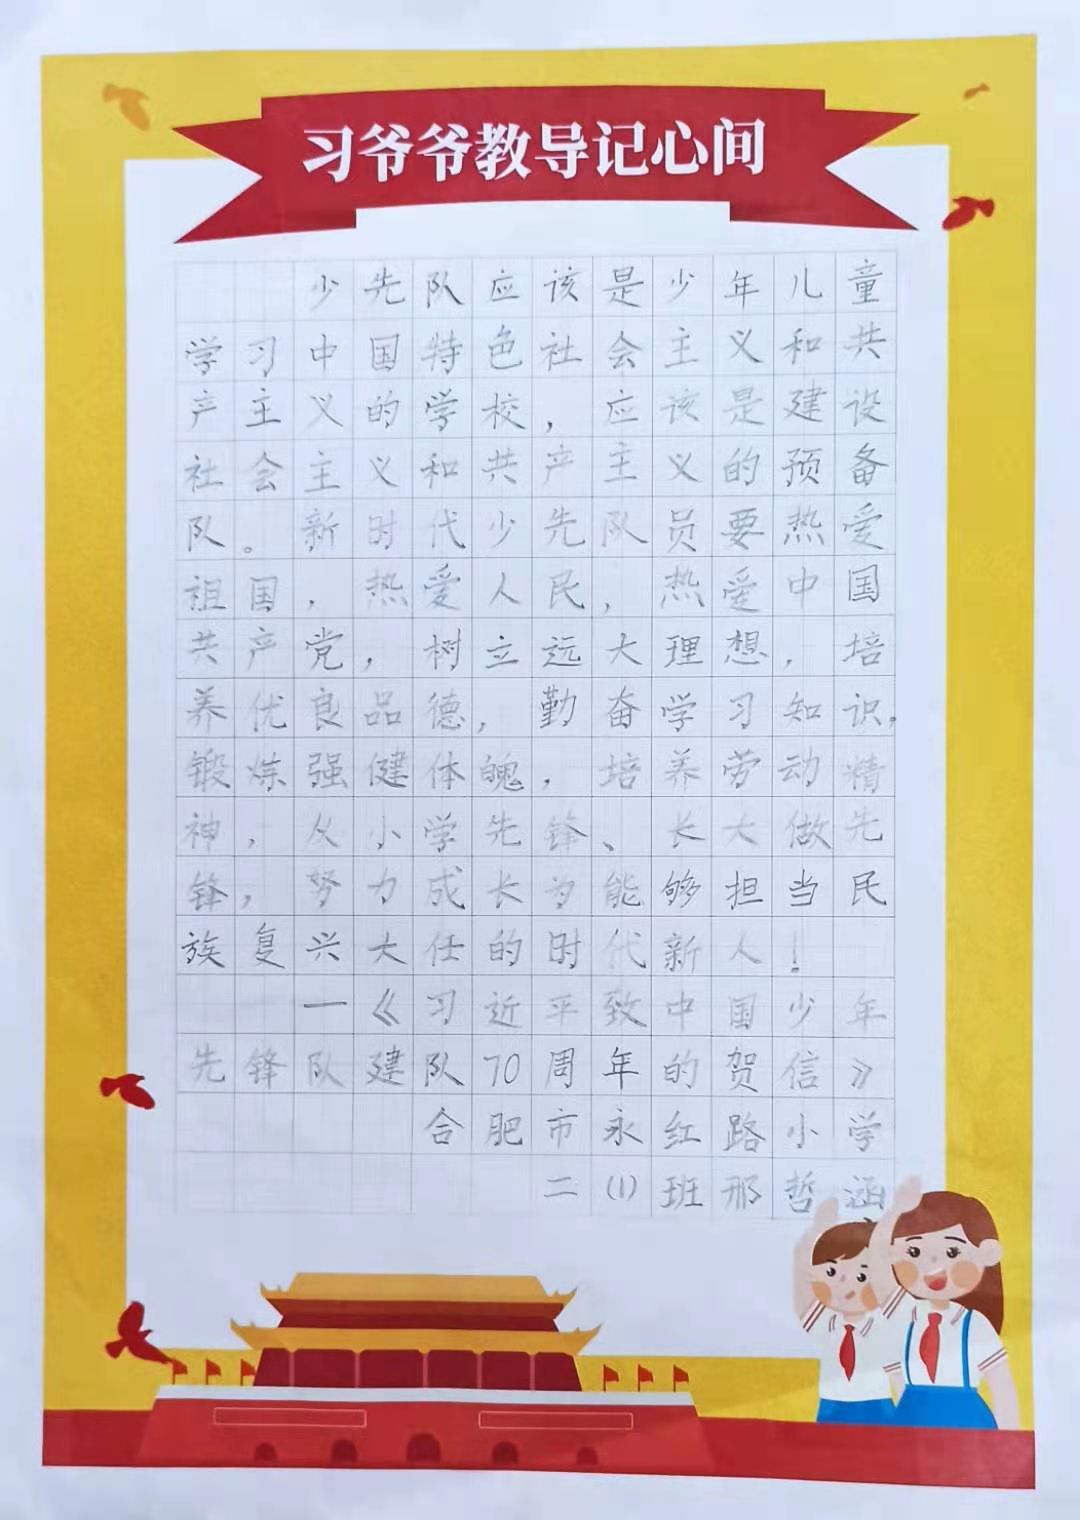 习爷爷教导记心间
少先队应该是少年儿童
学习中国特色社会主义和共
产主义的学校，应该是建设
社会主义和共产主义的预备
队。新时代少先队员要热爱
祖国，热爱人民，热爱中国
共产党，树立远大理想，培
养优良品德，勤奋学习知识，
锻炼强健体魄，培养劳动精
神，从小学先锋、长大做先
锋，努力成长为能够担当民
族复兴大任的时代新人！
—《习近平致中国少年
先锋队建队70周年的贺信》
合肥市永红路小学
二(1)班那哲涵